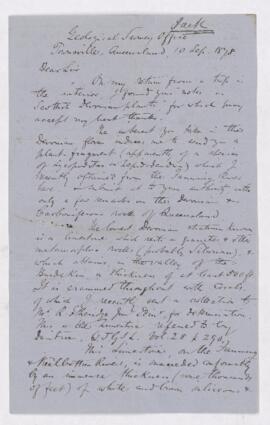 Jack
Geological Survey Office
Townsville, Queensland 10 Sep. 1878
Dear Sir
On my return from a trip in
the interior I found your "notes on
Scottish Devonian plants" for which pray
accept my best thanks.
The interest you take in this
Devonian flora induces me to send you a
plant-fragment (apparently of a
of Lepidodendron) which I
recently obtained from the Fanning River
here. I submit at to your authority with
only a few marks on the Devonian &
Carboniferous rocks of Queensland
The lowest Devonian stratum known
is a limestone which rests on granites & other
metamorphic rocks (probably Silurian), &
which attains, in the valley of the
Burdekin a thickness of at least 500 ft
It is crammed throughout with corals
of which I recently sent a collection to
Mr R Etheridge Junr Edinr. for determination.
This is the limestone referred to by
Daintree, Q.J.G.S. Vol 28 p 290.
This limestone, on the Fanning
& Reid Rivers, is succeeded conformably
by an immense thickness (some thousands
of feet) of white and brown